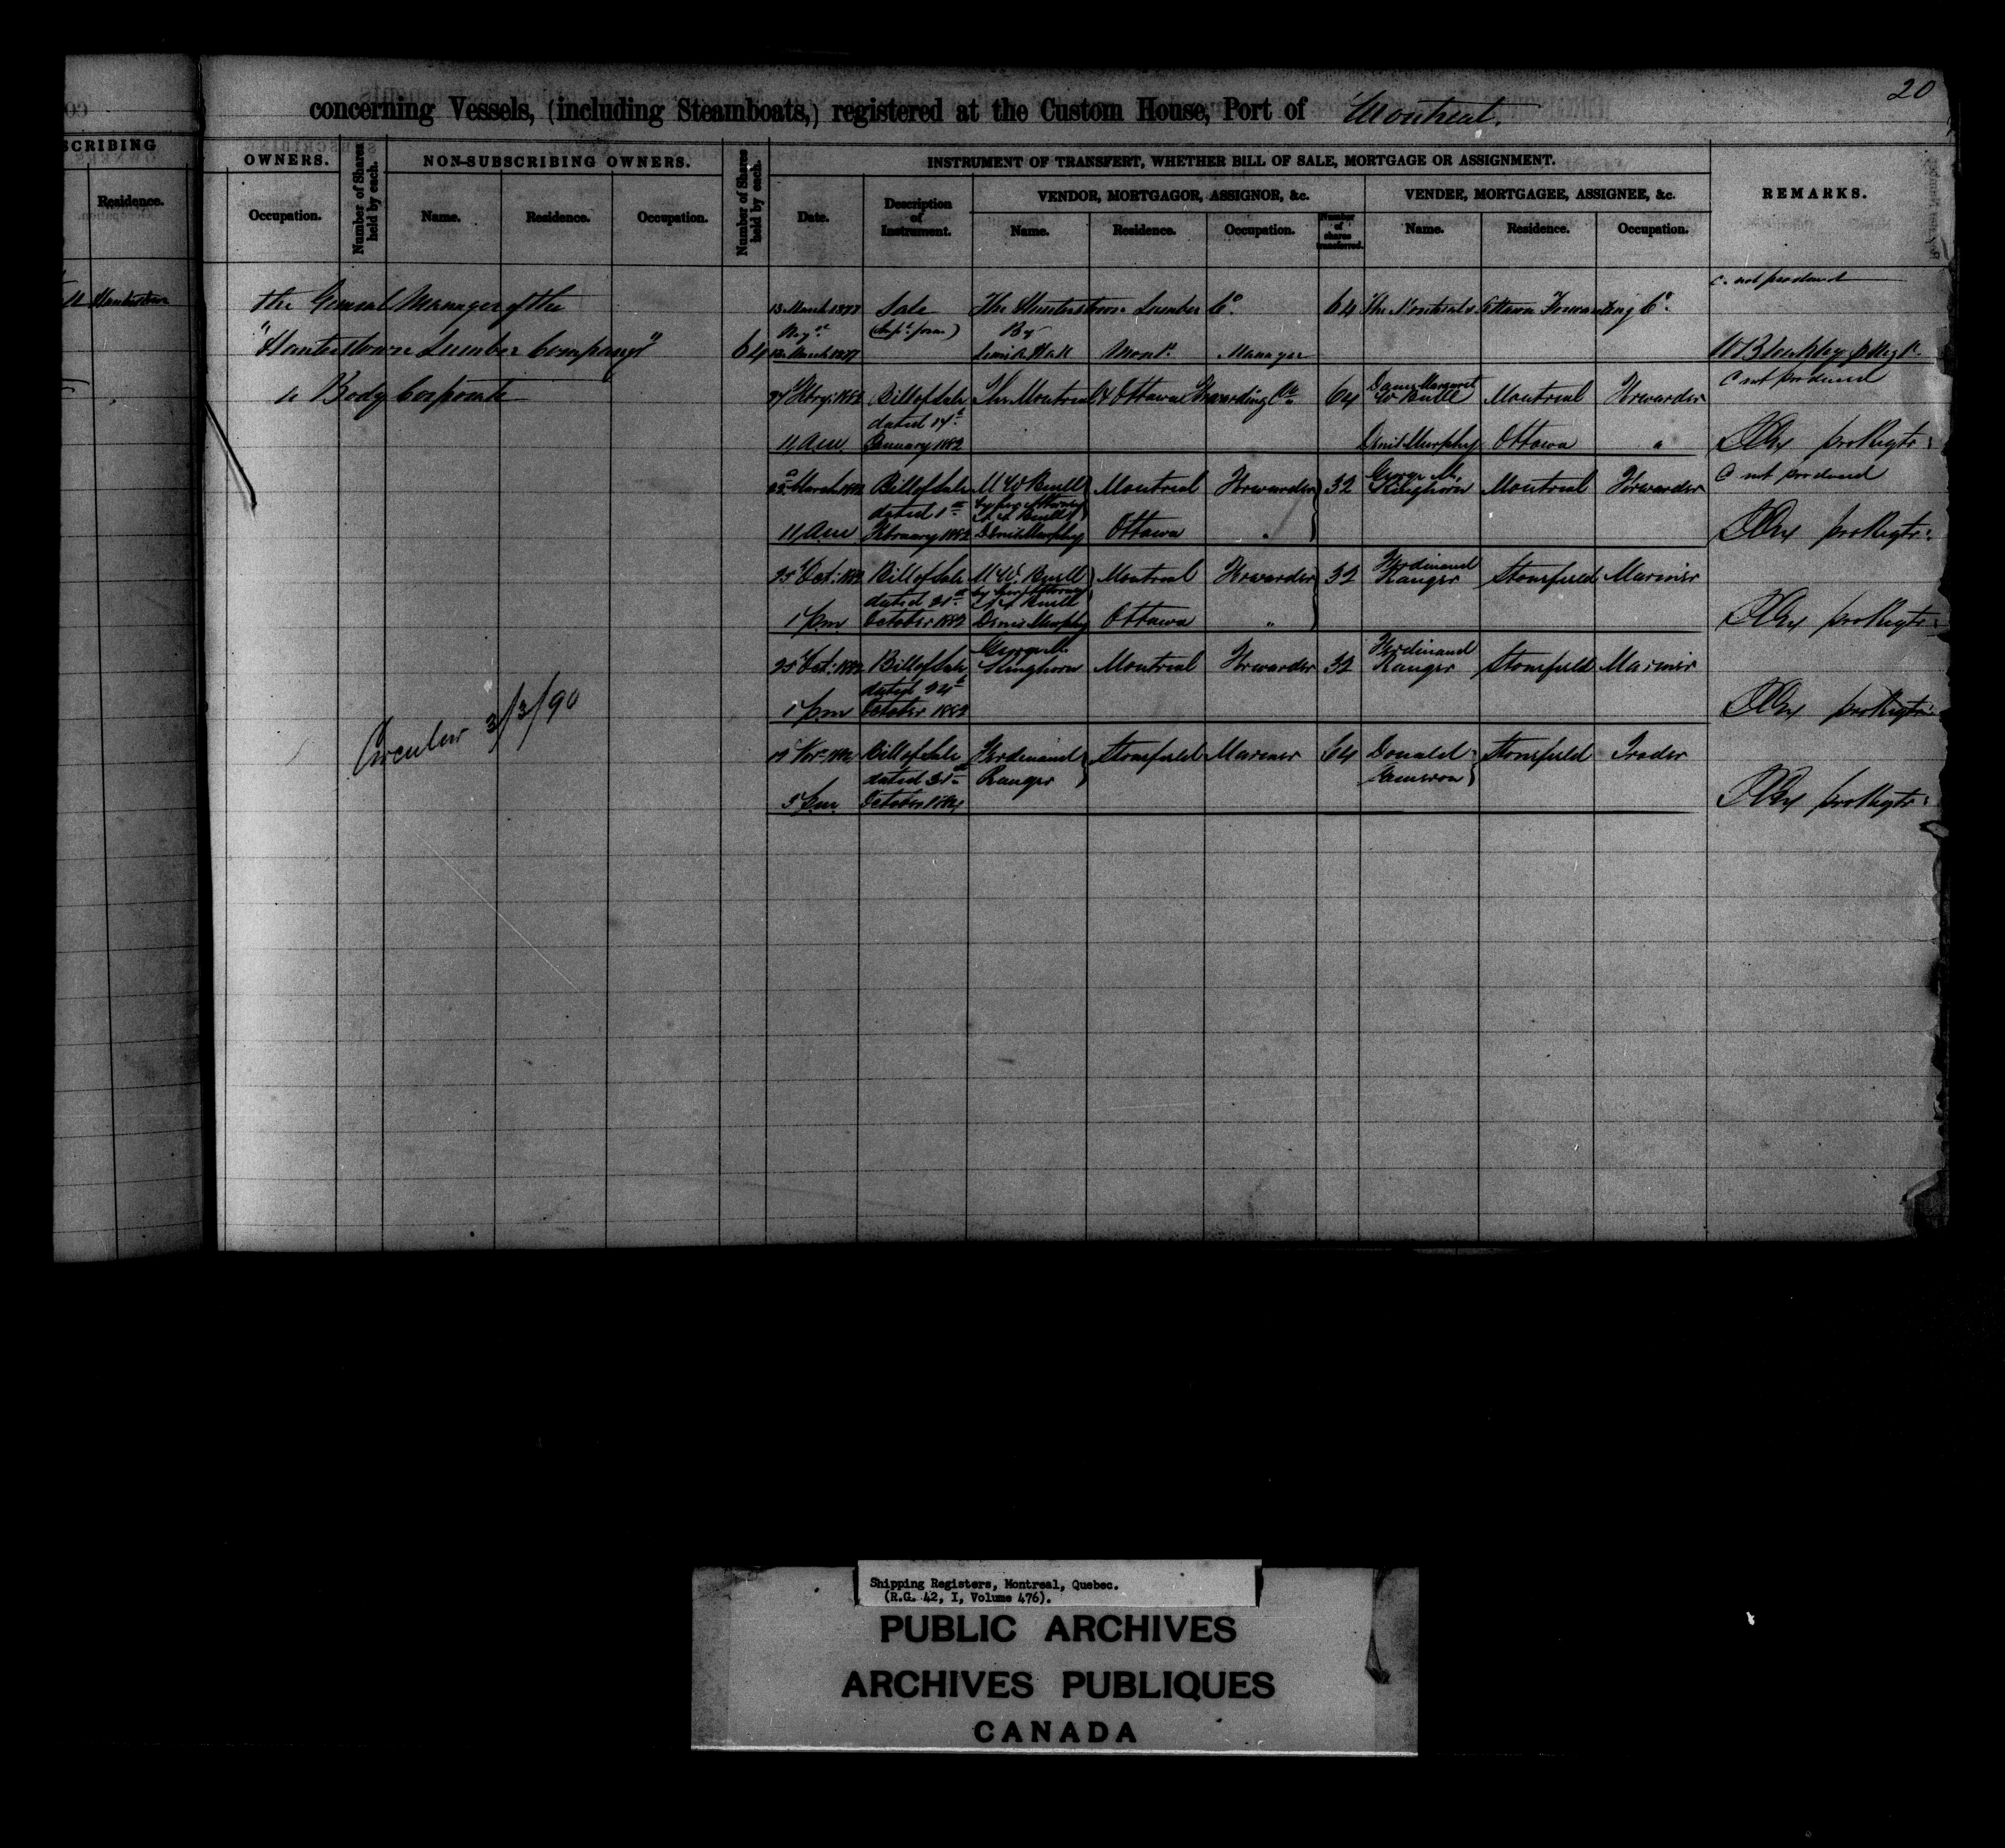 20
concerning Vessels, (including Steamboats,) registered at the Custom House, Port of Montreal.
SCRIBING
Residence.
OWNERS.
Occupation.
Number of Shares held by each.
NON-SUBSCRIBING OWNERS.
Name.
Residence.
Occupation.
Number of Shares held by each.
INSTRUMENT OF TRANSFERT, WHETHER BILL OF SALE, MORTGAGE OR ASSIGNMENT.
Date.
Description of Instrument.
VENDOR, MORTGAGOR, ASSIGNOR, &c.
Name.
Residence.
Occupation.
Number of shares transferred.
VENDEE, MORTGAGEE, ASSIGNEE, &c.
Name.
Residence.
Occupation.
REMARKS.
the General Manager of the
"Hunterstown Lumber Company" 64
a Body Corporate
Circular 3/3/90
C. not produced
13 March 1877 Sale The Hunterstown Lumber Co. 64 The Montreal & Ottawa Forwarding Co.
By
March 1877 Hall Montl. Manager
C not produced
Bill of Sale The Montreal & Ottawa Forwarding Co 64 Dame Margaret W Buell Montreal Forwarder
dated 14th
11 am January 1882 Denis Murphy Ottawa "
pro Regtr:
C not produced
March 1882 Bill of Sale M W Buell Montreal Forwarder 32 George M. Kinghorn Montreal Forwarder
dated 1st by her Attorney
Buell
11 am February 1882 Denis Murphy Ottawa "
pro Regtr:
25 Oct: 1882 Bill of Sale M W. Buell Montreal Forwarder 32 Ferdinand Ranger Stonefield Mariner
dated 21st by her Attorney
Buell
1 pm October 1882 Denis Murphy Ottawa "
pro Regtr:
25 Oct: 1882 Bill of Sale George M. Kinghorn Montreal Forwarder 32 Ferdinand Ranger Stonefield Mariner
dated 24th
1 pm October 1882
pro Regtr:
Bill of Sale Ferdinand Ranger Stonefield Mariner 64 Donald Cameron Stonefield Trader
dated 31st
5 pm October
pro Regtr:
Shipping Registers, Montreal, Quebec.
(R.G. 42, I, Volume 476).
PUBLIC ARCHIVES
ARCHIVES PUBLIQUES
CANADA